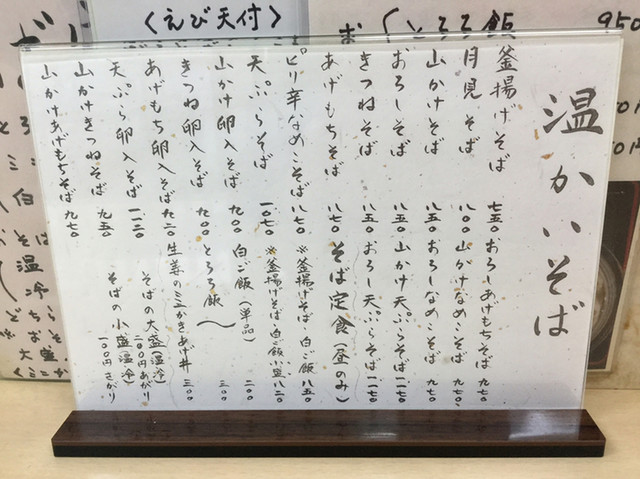 温かいそば
釜揚げそば 七五〇
月見そば 八〇〇
山かけそば 八五〇
おろしそば 八五〇
きつねそば 八五〇
あげもちそば 八七〇
ピリ辛なめこそば 八七〇
天ぷらそば 一〇七〇
山かけ卵入そば 九〇〇
きつね卵入そば 九〇〇
あげもち卵入そば 九二〇
天ぷら卵入そば 一一二〇
山かけきつねそば 九五〇
山かけあげもちそば 九七〇
おろしあげもちそば 九七〇
山かけなめこそば 九七〇
おろしなめこそば 九七〇
山かけ天ぷらそば 一一七〇
おろし天ぷらそば 一一七〇
そば定食(昼のみ)
※釜揚げそば 白ご飯 八五〇
※釜揚げそば・白ご飯小盛 八二〇
白ご飯(単品) 二〇〇
とろろ飯〜 三〇〇
生姜のミニかきあげ丼 三〇〇
そばの大盛(温冷)
二〇〇円あがり
そばの小盛(温冷)
一〇〇円さがり
〈えび天付〉
とろろ飯
950